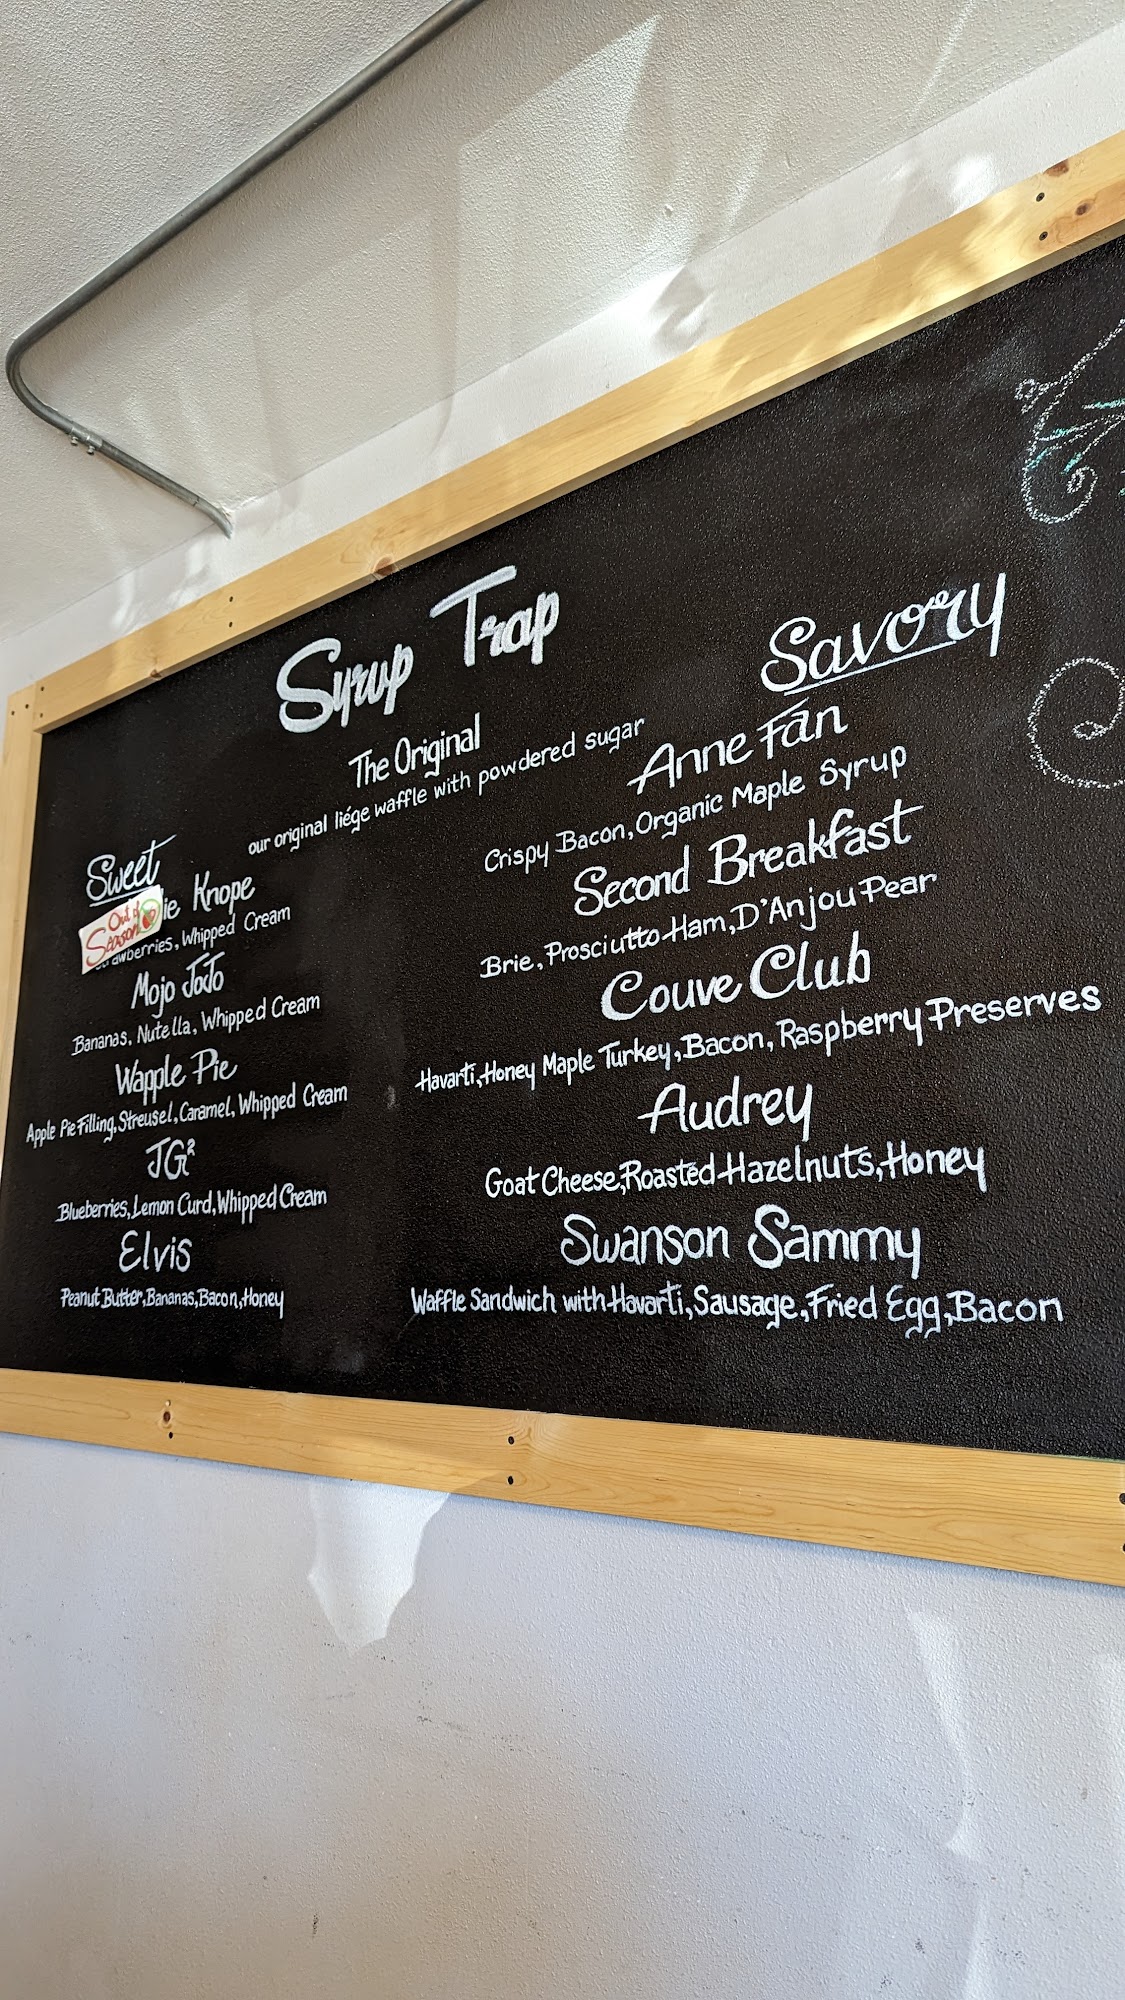 Syrup Trap
The Original
our original liége waffle with powdered sugar
Sweet
Out of
Season
ie Knope
Strawberries, Whipped Cream
Mojo JoJo
Bananas, Nutella, Whipped Cream
Wapple Pie
Apple Pie Filling, Streusel, Caramel, Whipped Cream
JG²
Blueberries, Lemon Curd, Whipped Cream
Elvis
Peanut Butter, Bananas, Bacon, Honey
Savory
Anne Fán
Crispy Bacon, Organic Maple Syrup
Second Breakfast
Brie, Prosciutto Ham, D'Anjou Pear
Couve Club
Havarti, Honey Maple Turkey, Bacon, Raspberry Preserves
Audrey
Goat Cheese, Roasted Hazelnuts, Honey
Swanson Sammy
Waffle Sandwich with Havarti, Sausage, Fried Egg, Bacon